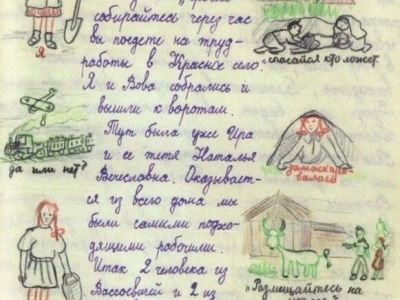 собирайтесь через час
вы поедете на труд-
работы в Красное село.
Я и Вова собрались и
вышли к воротам.
Тут была уже Ира
и ее тетя Наталья
Вячеславна. Оказывает-
ся из всего дома мы
были самыми подхо-
дящими рабочими.
Итак 2 человека из
и 2 из
Я
да или нет?
"спасайся кто может
замаскиро-
валась
"Размещайтесь на